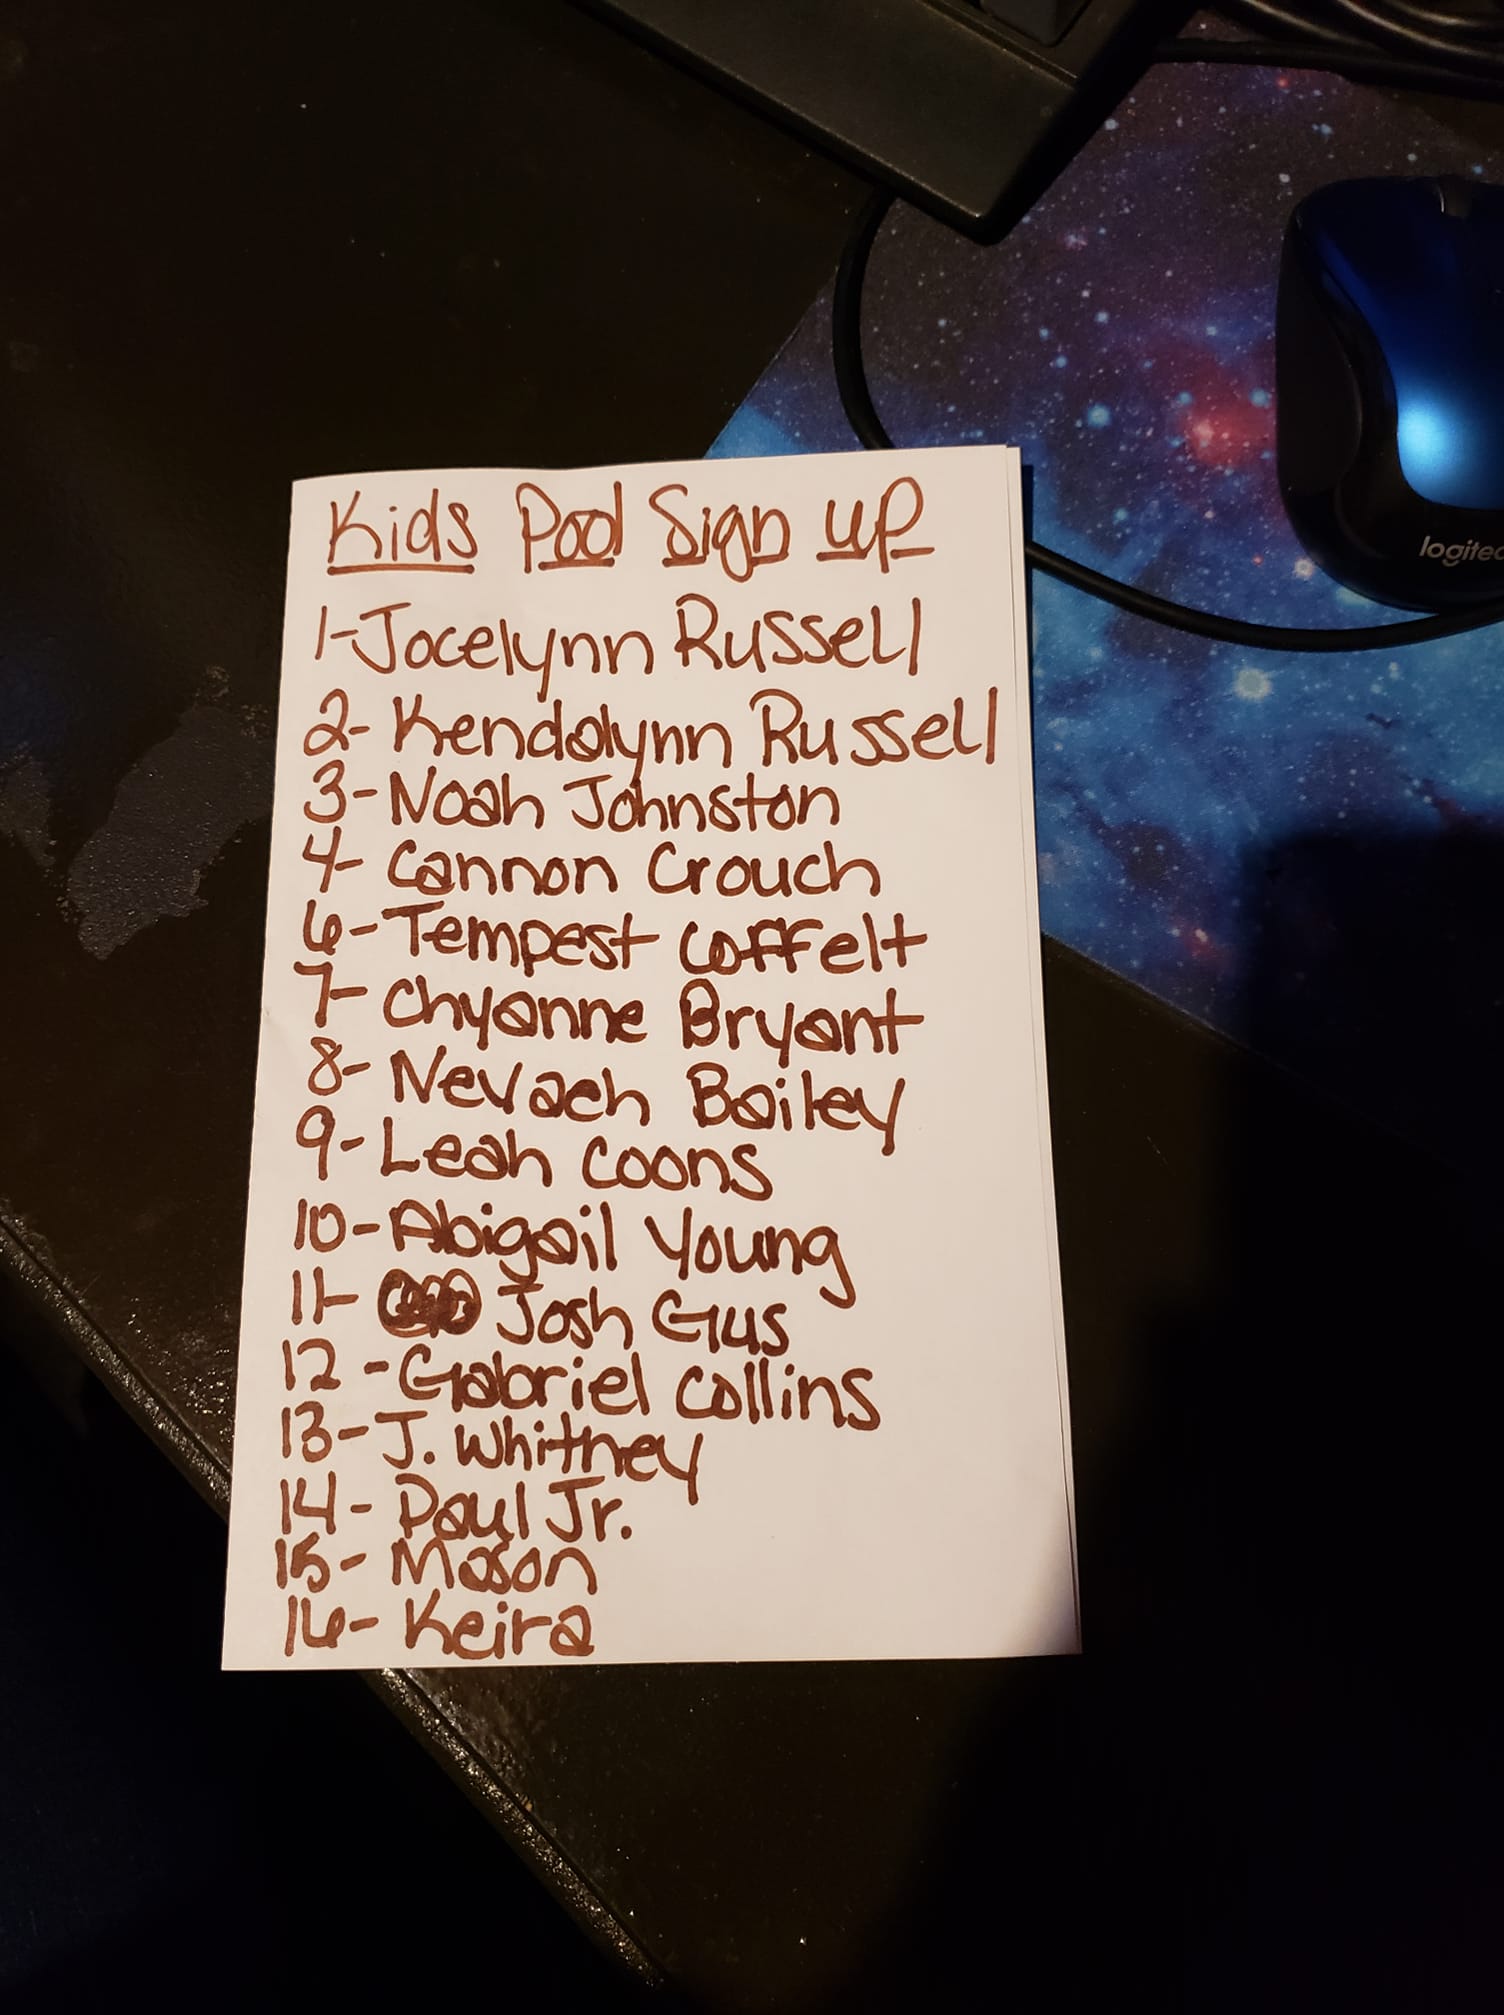 Kids Pool Sign up
1-Jocelynn Russell
2- Kendalynn Russell
3- Noah Johnston
4- Cannon Crouch
6- Tempest Coffelt
7- Chyanne Bryant
8- Nevaeh Bailey
9- Leah Coons
10- Abigail Young
11- Josh Gus
12 - Gabriel Collins
13- J. Whitney
14- Paul Jr.
15- Mason
16- Keira
logitec